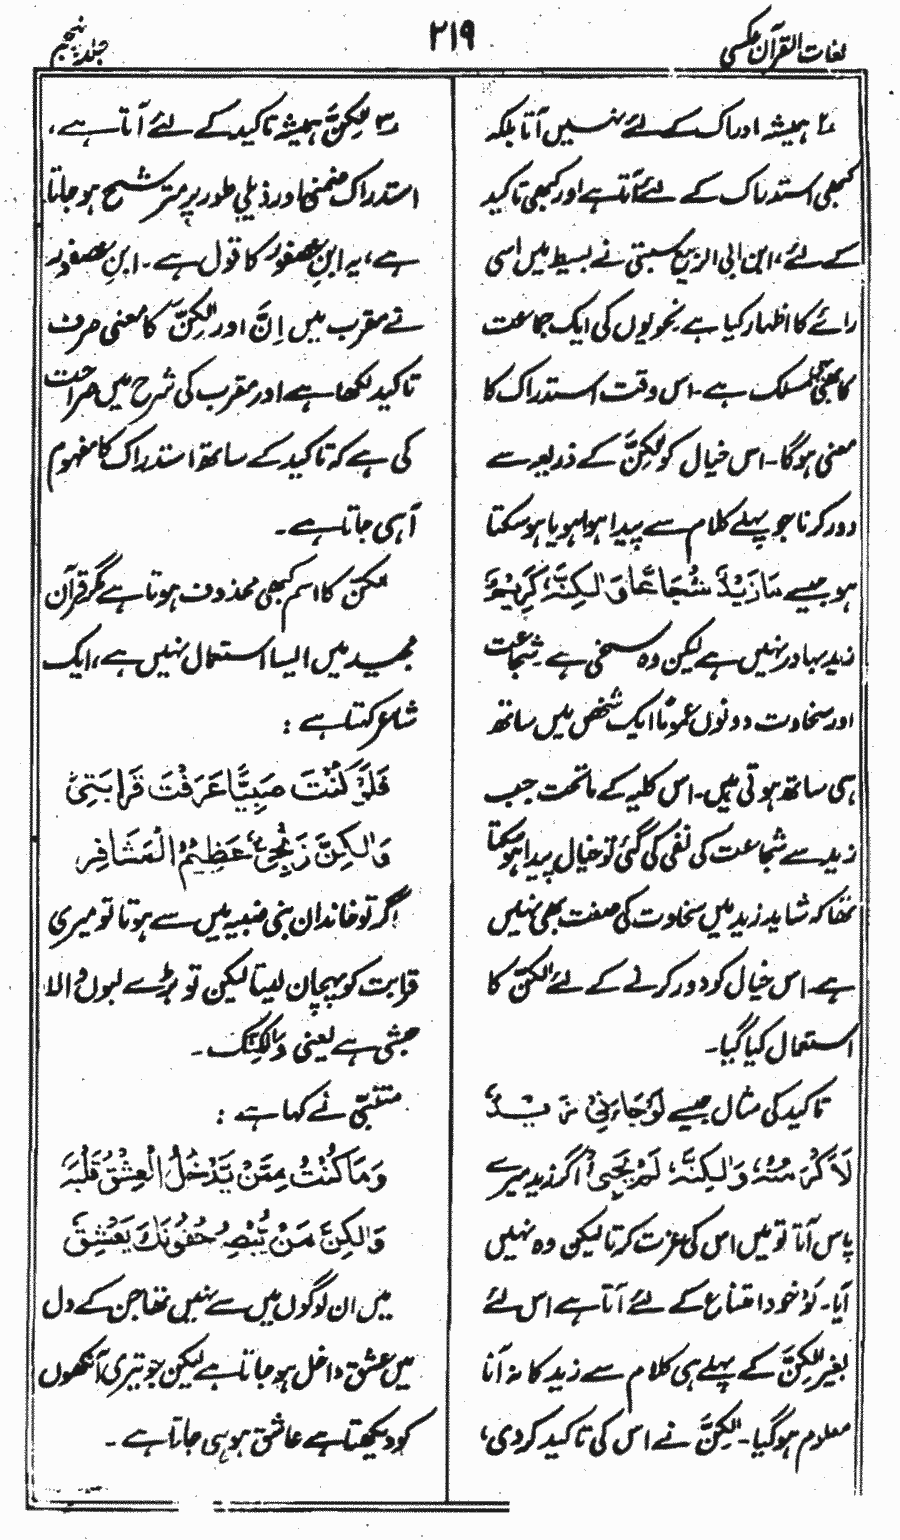 لغات القرآن عکسی
۲۱۹
جلد پنجم
۲ ہمیشہ ادراک کے لئے نہیں آتا بلکہ
کبھی استدراک کے لئے آتا ہے اور کبھی تاکید
کے لئے، ابن ابی الربیع سبتی نے بسیط میں اسی
رائے کا اظہار کیا ہے نحویوں کی ایک جماعت
کا بھی یہی مسلک ہے۔ اس وقت استدراک کا
معنی ہوگا۔ اس خیال کو لٰکِنَّ کے ذریعہ سے
دور کرنا جو پہلے کلام سے پیدا ہوا ہو یا ہو سکتا
ہو جیسے مَا زَیْدٌ شُجَاعًا وَّ لٰکِنَّہٗ کَرِیْمٌ
زید بہادر نہیں ہے لیکن وہ سخی ہے شجاعت
اور سخاوت دونوں عمومًا ایک شخص میں ساتھ
ہی ساتھ ہوتی ہیں۔ اس کلیہ کے ماتحت جب
زید سے شجاعت کی نفی کی گئی تو خیال پیدا ہو سکتا
تھا کہ شاید زید میں سخاوت کی صفت بھی نہیں
ہے۔ اس خیال کو دور کرنے کے لئے لٰکنّ کا
استعمال کیا گیا۔
تاکید کی مثال جیسے لَوْجَاءَنِیْ زَیْدٌ
لَاَکْرَمْتُہٗ وَلٰکِنَّہٗ لَمْ یَجِیْٔ اگر زید میرے
پاس آتا تو میں اس کی عزت کرتا لیکن وہ نہیں
آیا۔ لَوْ خود امتناع کے لئے آتا ہے اس لئے
بغیر لٰکِنَّ کے پہلے ہی کلام سے زید کا نہ آنا
معلوم ہوگیا۔ لٰکِنَّ نے اس کی تاکید کردی،
۳ لٰکِنَّ ہمیشہ تاکید کے لئے آتا ہے،
استدراک ضمنی اور ذیلی طور پر مترشح ہو جاتا
ہے، یہ ابنِ عصفور کا قول ہے۔ ابنِ عصفور
نے مقرب میں اِنَّ اور لٰکِنَّ کا معنی صرف
تاکید لکھا ہے اور مقرب کی شرح میں صراحت
کی ہے کہ تاکید کے ساتھ استدراک کا مفہوم
آہی جاتا ہے۔
لٰکنّ کا اسم کبھی محذوف ہوتا ہے مگر قرآن
مجید میں ایسا استعمال نہیں ہے، ایک
شاعر کہتا ہے :
فَلَوْ کُنْتَ ضَبِیًّا عَرَفْتَ قَرَابَتِیْ
وَلٰکِنَّ زَنْجِیٌّ عَظِیْمُ الْمَشَافِرِ
اگر تو خاندان بنی ضبیہ میں سے ہوتا تو میری
قرابت کو پہچان لیتا لیکن تو بڑے لبوں والا
حبشی ہے یعنی وَلٰکِنَّکَ۔
متنبیّ نے کہا ہے :
وَمَا کُنْتُ مِمَّنْ یَّدْخُلُ الْعِشْقُ قَلْبَہٗ
وَلٰکِنَّ مَنْ یُّبْصِرْ جُفُوْنَکَ یَعْشِقْ
میں ان لوگوں میں سے نہیں تھا جن کے دل
میں عشق داخل ہو جاتا ہے لیکن جو تیری آنکھوں
کو دیکھتا ہے عاشق ہو ہی جاتا ہے۔